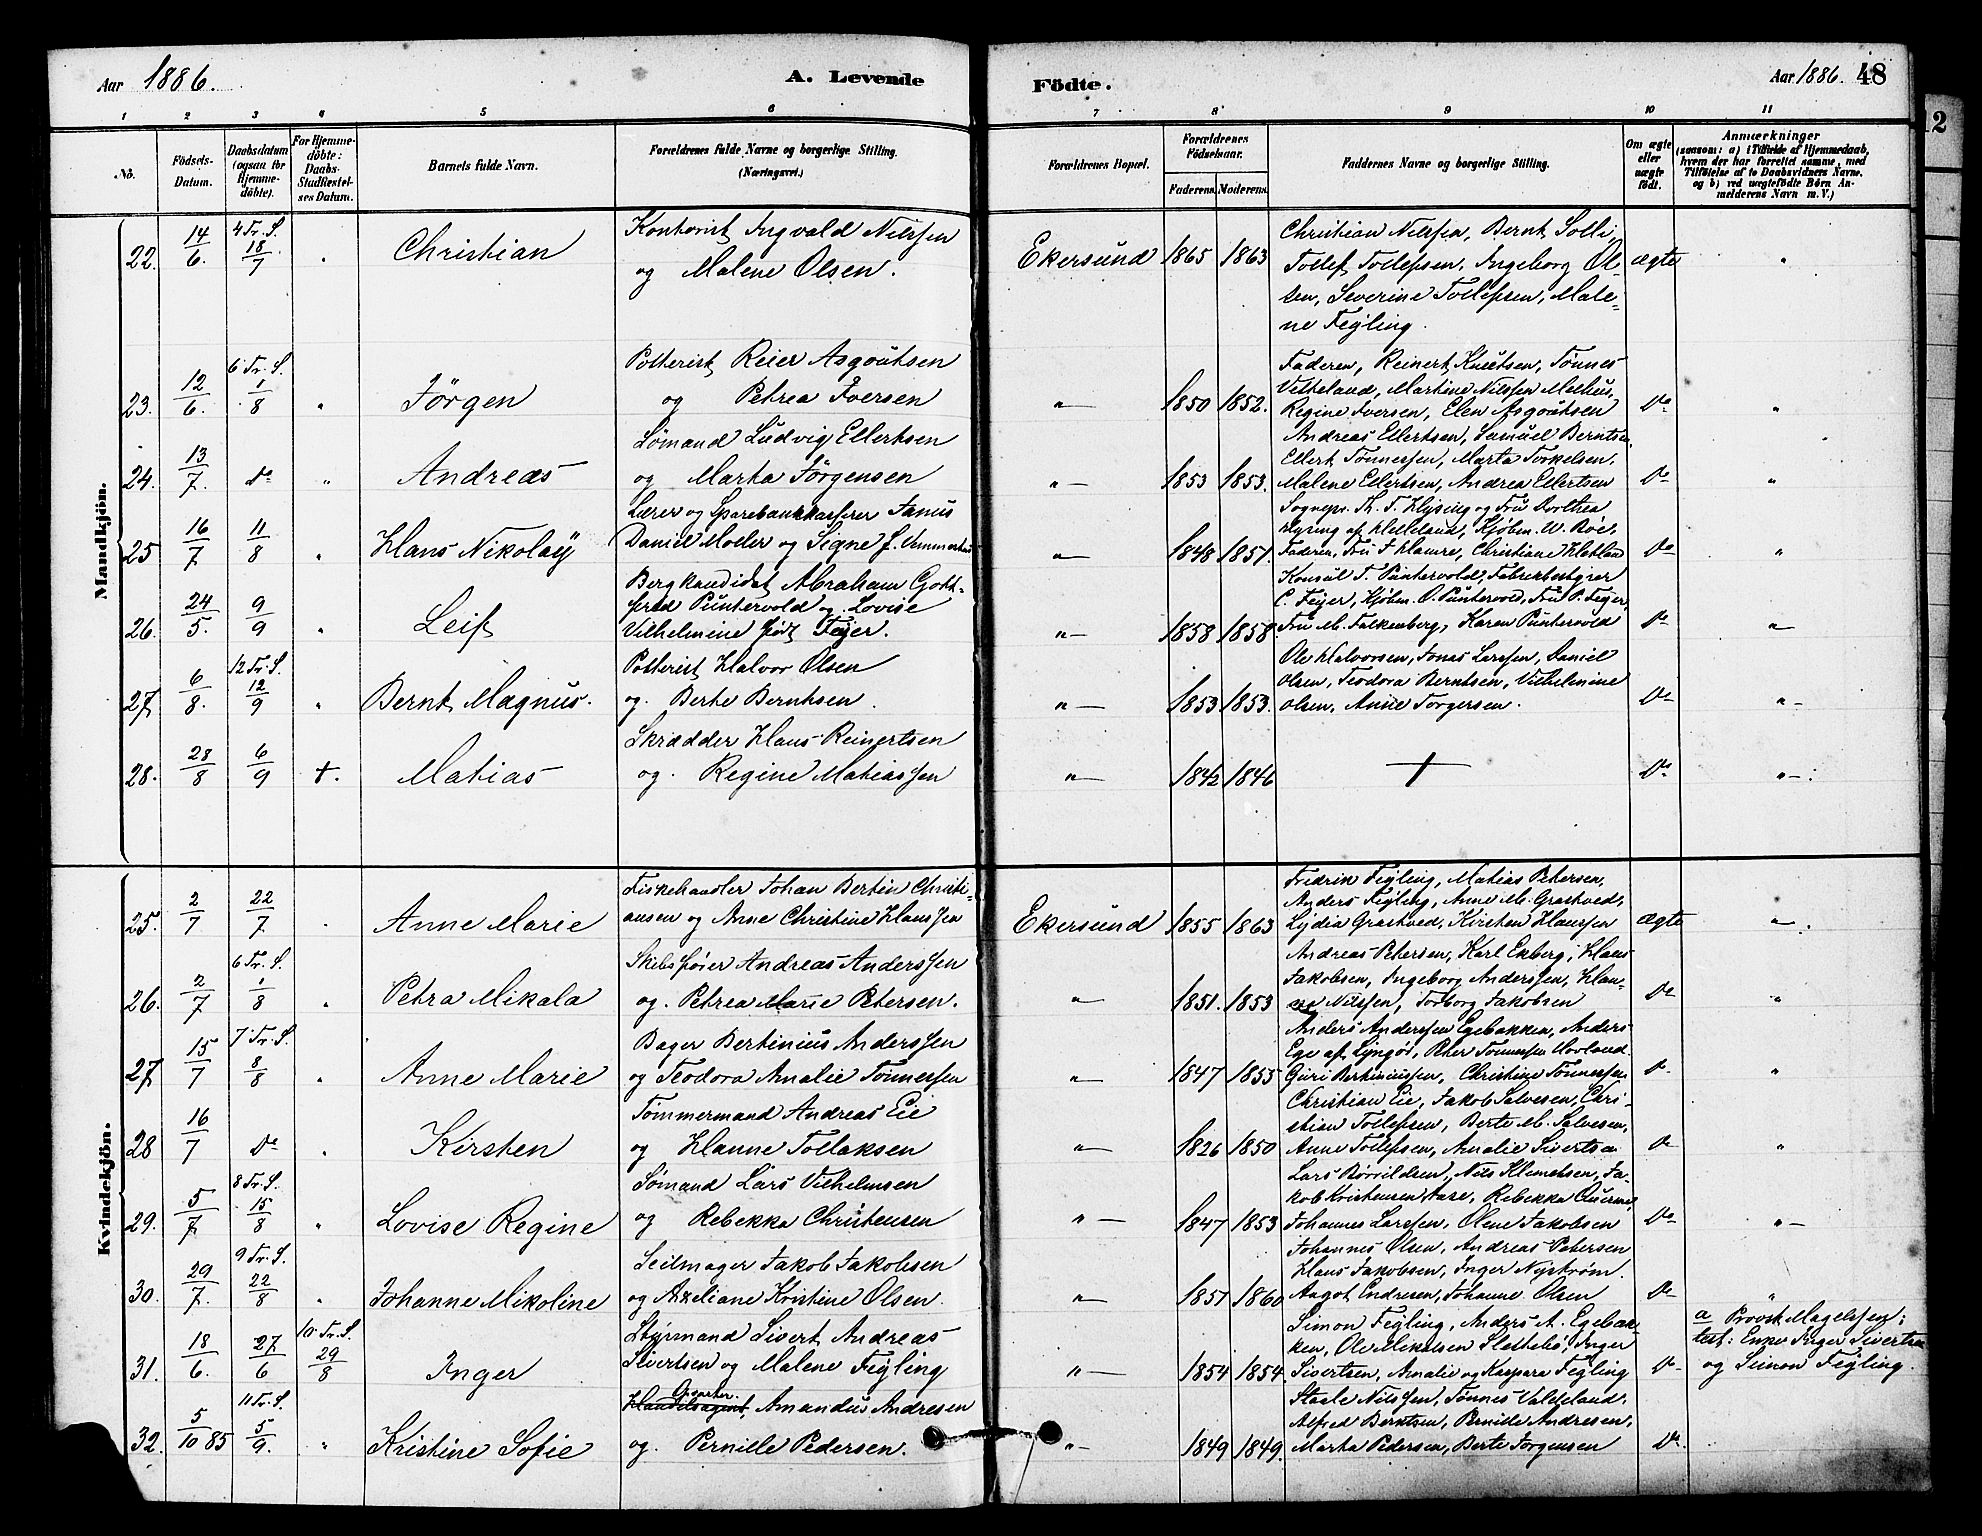 Aar 1886.
A. Levende
Födte.
Aar 1886. 48
12
1 2 3 4 5 6 7 8 9 10 11
No.
Födsels-Datum.
Daabsdatum (ogsaa for Hjemme-döbte).
For Hjemme-döbte: Daabs-Stadfestel-ses Datum.
Barnets fulde Navn.
Forældrenes fulde Navne og borgerlige Stilling. (Næringsvei.)
Forældrenes Bopæl.
Forældrenes Födselsaar.
Faderens. Moderens.
Faddernes Navne og borgerlige Stilling.
Om ægte eller uægte födt.
Anmærkninger
(saasom: a) i Tilfælde af Hjemmedaab, hvem der har forrettet samme, med Tilföielse af to Daabsvidners Navne. og b) ved uægtefödte Börn An-melderens Navn m. V.)
Mandkjön.
22. 14/6. 4 Tr. S. 18/7 " Christian
Kontorist Ingvald Nilssen
og Malene Olsen.
Ekersund 1865 1863
Christian Nilssen, Bernt Solli,
Tollef Tollefsen, Ingeborg Ol-
sen, Severine Tollefsen, Male-
ne Feyling.
ægte "
23. 12/6. 6 Tr. S. 1/8 " Jörgen
Potterist Reier Asgautsen
og Petrea Iversen
"— 1850 1852.
Faderen, Reinert Knutsen, Tønnes
Velteland, Martine Nilssen Melhus,
Regine Iversen, Elen Asgautsen
Do "
24. 13/7. do " Andreas
Sømand Ludvig Ellertsen
og Marta Jörgensen
"— 1853 1853.
Andreas Ellertsen, Samuel Berntsen,
Ellert Tønnessen, Marta Torkelsen,
Malene Ellertsen, Andrea Ellertsen
Do "
25 16/7 11/8 " Hans Nikolay
Lærer og Sparebankkasserer Janus
Daniel Moder og Signe J.
"— 1848 1857.
Sognepr. Th. T. Klysing og Fru Dorthea
Klysing af Helleland, Kjøbm. W. Böe,
Faderen, Fru J Hamre, Christiane Hetland
Do "
26. 24/5. 9/9 " Leif
Bergkandidat Abraham Gott-
fred Puntervold og Lovise
Vilhelmine født Feyer.
"— 1858 1858.
Konsul T. Puntervold, Fabrikbestyrer
C. Feyer, Kjøbm. O. Puntervold, Fru P. Feyer,
Fru M. Falkenberg, Karen Puntervold
Do "
27 6/8. 12 Tr. S. 12/9 " Bernt Magnus.
Potterist Halvor Olsen
og. Berte Berntsen.
"— 1853. 1853.
Ole Halvorsen, Jonas Larssen, Daniel
Olsen, Teodora Berntsen, Vilhelmine
Olsen, Anne Torgersen.
Do "—
28. 28/8 6/9 +. Matias
Skrædder Hans Reinertsen
og. Regine Matiassen
"— 1842 1846
+
Do "—
Kvindekjön.
25. 2/7 22/7 " Anne Marie
Fiskehandler Johan Bertin Christi-
ansen og Anne Christine Hanssen
Ekersund 1855 1863
Fredrik Feyling, Matias Petersen,
Anders Feyling, Anne M. Grastved,
Lydia Grastved, Kirsten Hanssen
ægte "—
26. 2/7 6 Tr. S. 1/8 " Petra Mikala
Skibsfører Andreas Anderssen
og. Petrea Marie Petersen.
"— 1851. 1853
Andreas Petersen, Karl Ekberg, Hans
Jakobsen, Ingeborg Anderssen, Han-
na Nilssen, Torborg Jakobsen
Do "
27 15/7 7 Tr. S. 8/8 " Anne Marie
Bager Bertinius Anderssen
og Teodora Amalie Tønnessen
"— 1847 1855
Anders Anderssen Egebakken, Anders
Ege af Lyngör, Peter Tønnessen Hovland
Guri Bertiniussen, Christine Tønnessen
Do "
28 16/7 Do " Kirsten
Tømmermand Andreas Eie
og Hanne Tollaksen
"— 1826 1850
Christian Eie, Jakob Salvesen, Chri-
stian Tollefsen, Berte M. Salvesen,
Anne Tollefsen, Amalie Sivertsen
Do "
29. 5/7 8 Tr. S. 15/8 " Lovise Regine
Sømand Lars Vilhelmsen
og Rebekka Christensen
"— 1847 1853
Lars Børrildsen, Nils Klemetsen, Ja-
kob Kristensen Aase, Rebekka
Johannes Larssen, Olene Jakobsen
Do "—
30. 29/7. 9 Tr. S. 22/8 " Johanne Mikoline
Seilmager Jakob Jakobsen
og Axeliane Kristine Olsen.
"— 1851 1860
Johannes Olsen, Andreas Petersen
Hans Jakobsen, Inger Nyström.
Aagot Endresen, Johanne Olsen
Do "
31. 18/6. 27/6 10 Tr. S. 29/8 Inger
Styrmand Sivert Andreas
Sivertsen og Malene Feyling
"— 1854 1854
Simon Feyling, Anders A. Egebak-
ken, Ole Mikalsen Slettebö, Inger
Sivertsen, Amalie og Kaspara Feyling
Do
a Provst Magelssen;
test: Enke Inger Sivertsen
og Simon Feyling.
32. 5/10 85 11 Tr. S. 5/9. " Kristine Sofie
Handelsagent, Amandus Andresen
og. Pernille Pedersen.
"— 1849 1849.
Staale Nilssen, Tønnes Valdeland,
Alfred Berntsen, Pernille Andresen,
Marta Pedersen, Berte Jørgensen
Do